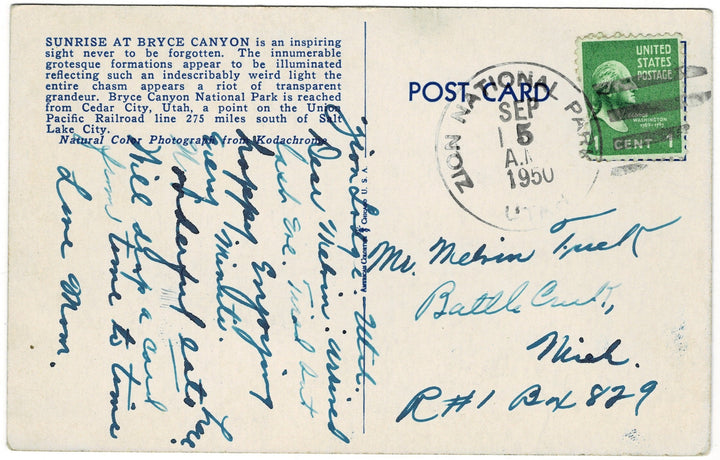 SUNRISE AT BRYCE CANYON is an inspiring
sight never to be forgotten. The innumerable
grotesque formations appear to be illuminated
reflecting such an indescribably weird light the
entire chasm appears a riot of transparent
grandeur. Bryce Canyon National Park is reached
from Cedar City, Utah, a point on the Union
Pacific Railroad line 275 miles south of Salt
Lake City.
Natural Color Photograph from Kodachrome
Zion Lodge. Utah.
Dear Melvin: Arrived
here Eve. Tired but
happy. Enjoying
every Minute.
Wonderful eats here.
Will drop a card
from time to time
Love Mom.
POST CARD
ZION NATIONAL PARK
SEP
5
A.M
1950
UTAH
UNITED
STATES
POSTAGE
WASHINGTON
1 CENT 1
Mr. Melvin Tuck
Battle Creek,
Mich.
R#1 Box 829